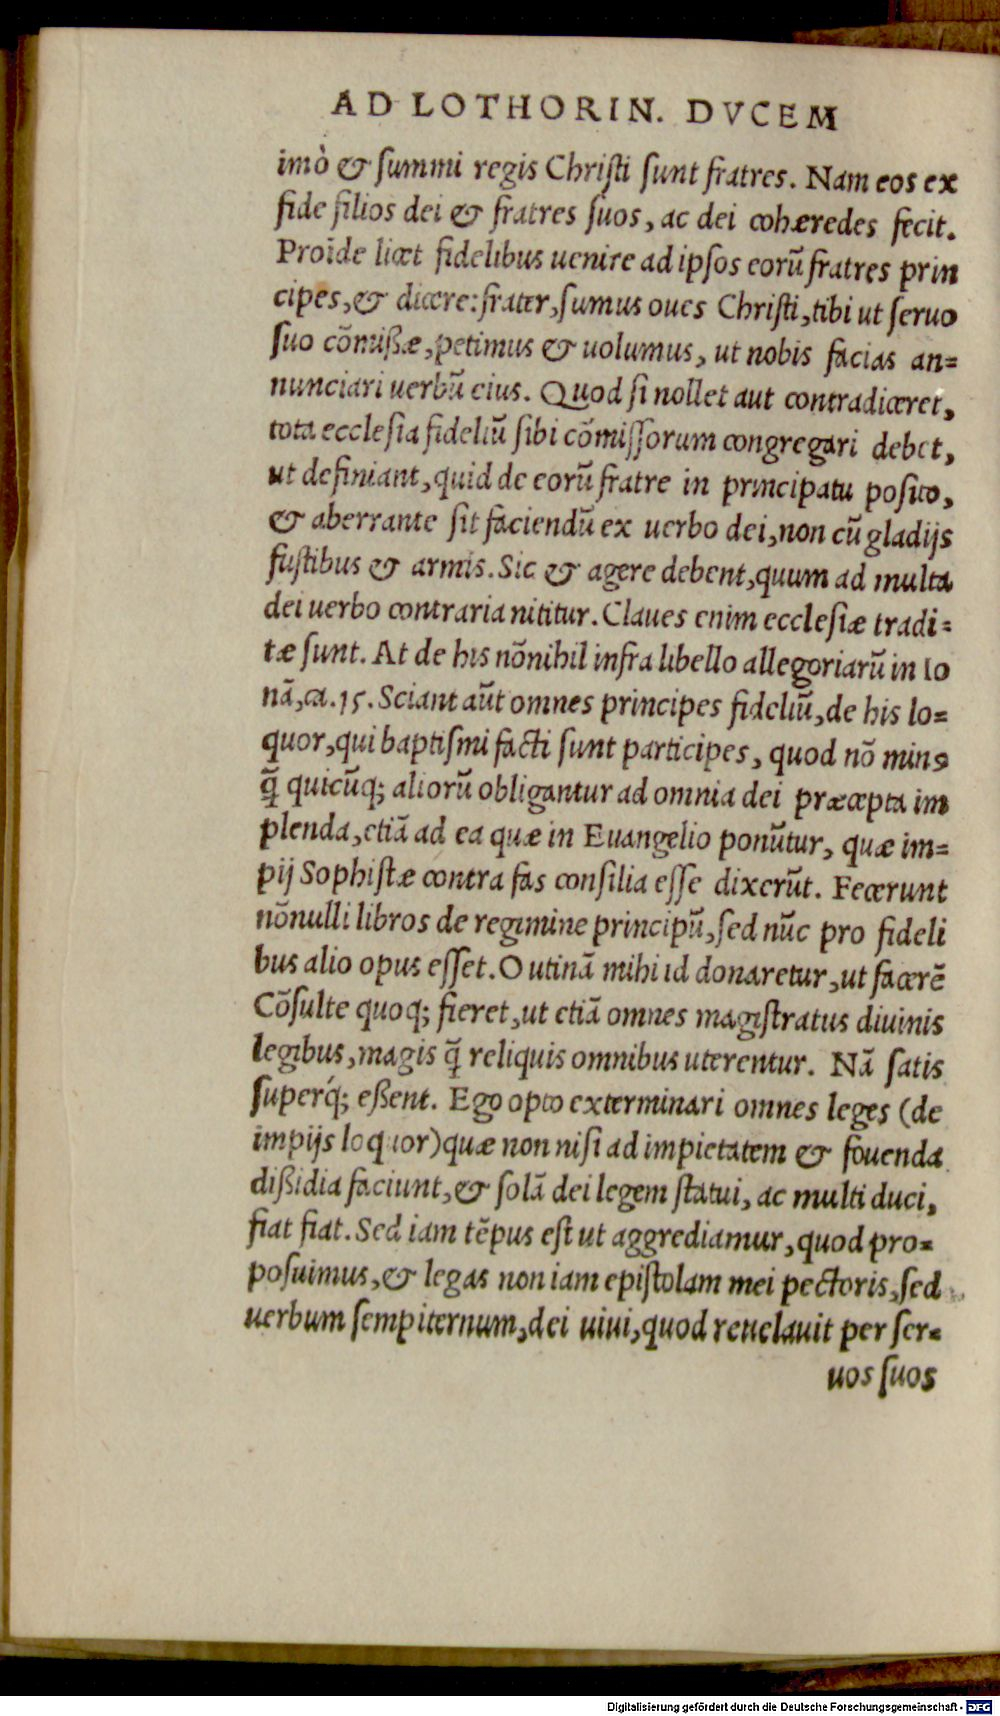 AD LOTHORIN. DVCEM
imò & ſummi regis Chriſti ſunt fratres. Nam eos ex
fide filios dei & fratres ſuos, ac dei cohæredes fecit.
Proĩde licet fidelibus uenire ad ipſos eorũ fratres prin
cipes, & dicere: frater, ſumus oues Chriſti, tibi ut ſeruo
ſuo cõmißæ, petimus & uolumus, ut nobis facias an=
nunciari uerbũ eius. Quod ſi nollet aut contradiceret,
tota eccleſia fideliũ ſibi cõmiſſorum congregari debet,
ut definiant, quid de eorũ fratre in principatu poſito,
& aberrante ſit faciendũ ex uerbo dei, non cũ gladijs
fuſtibus & armis. Sic & agere debent, quum ad multa
dei uerbo contraria nititur. Claues enim eccleſiæ tradi=
tæ ſunt. At de his nõnihil infra libello allegoriarũ in Io
nã, ca. 15. Sciant aũt omnes principes fideliũ, de his lo=
quor, qui baptiſmi facti ſunt participes, quod nõ minꝰ
q̃ quicũq; aliorũ obligantur ad omnia dei præcepta im
plenda, etiã ad ea quæ in Euangelio ponũtur, quæ im=
pij Sophiſtæ contra fas conſilia eſſe dixerũt. Fecerunt
nõnulli libros de regimine principũ, ſed nũc pro fideli
bus alio opus eſſet. O utinã mihi id donaretur, ut facerẽ
Cõſulte quoq; fieret, ut etiã omnes magiſtratus diuinis
legibus, magis q̃ reliquis omnibus uterentur. Nã ſatis
ſuperq́; eßent. Ego opto exterminari omnes leges (de
impijs loquor) quæ non niſi ad impietatem & fouenda
dißidia faciunt, & ſolã dei legem ſtatui, ac multi duci,
fiat fiat. Sed iam tẽpus eſt ut aggrediamur, quod pro=
poſuimus, & legas non iam epiſtolam mei pectoris, ſed
uerbum ſempiternum, dei uiui, quod reuelauit per ſer=
uos ſuos
Digitalisierung gefördert durch die Deutsche Forschungsgemeinschaft - DFG